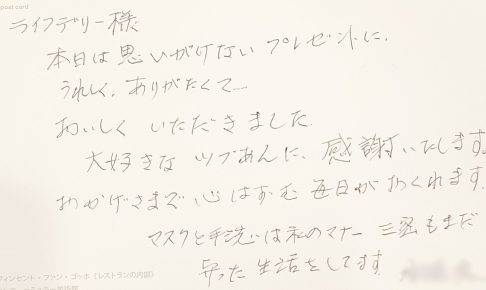 post card
ライフデリー様
本日は思いがけない プレゼントに、
うれしく、ありがたくて……
おいしく いただきました。
大好きな ツブあんに、感謝いたします。
おかげさまで 心はずむ 毎日が おくれます。
マスクと手洗いは私のマナー 三密もまだ
守った 生活をしてます。
ヴィンセント・ファン・ゴッホ《レストランの内部》